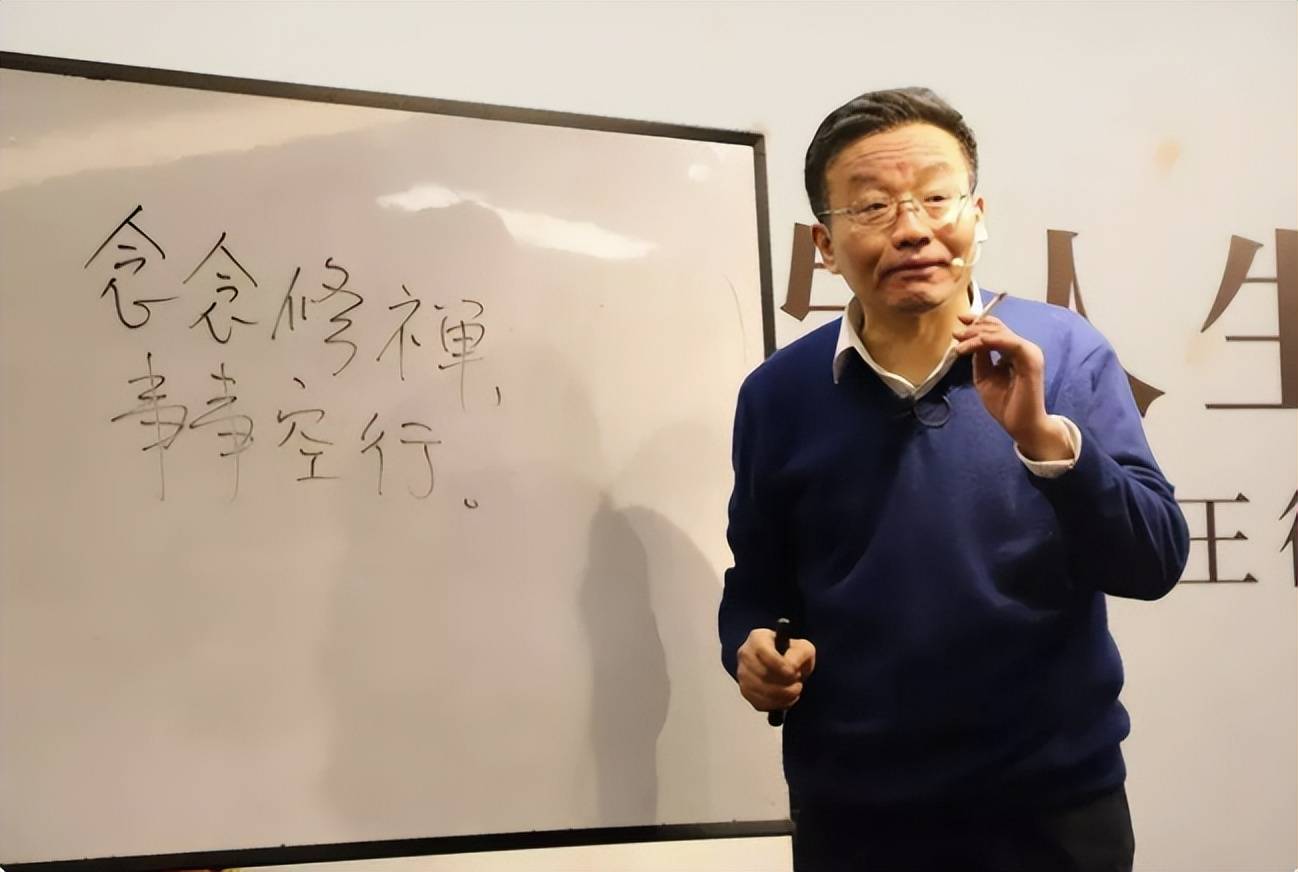 念念修禅,
事事空行。
人生
王